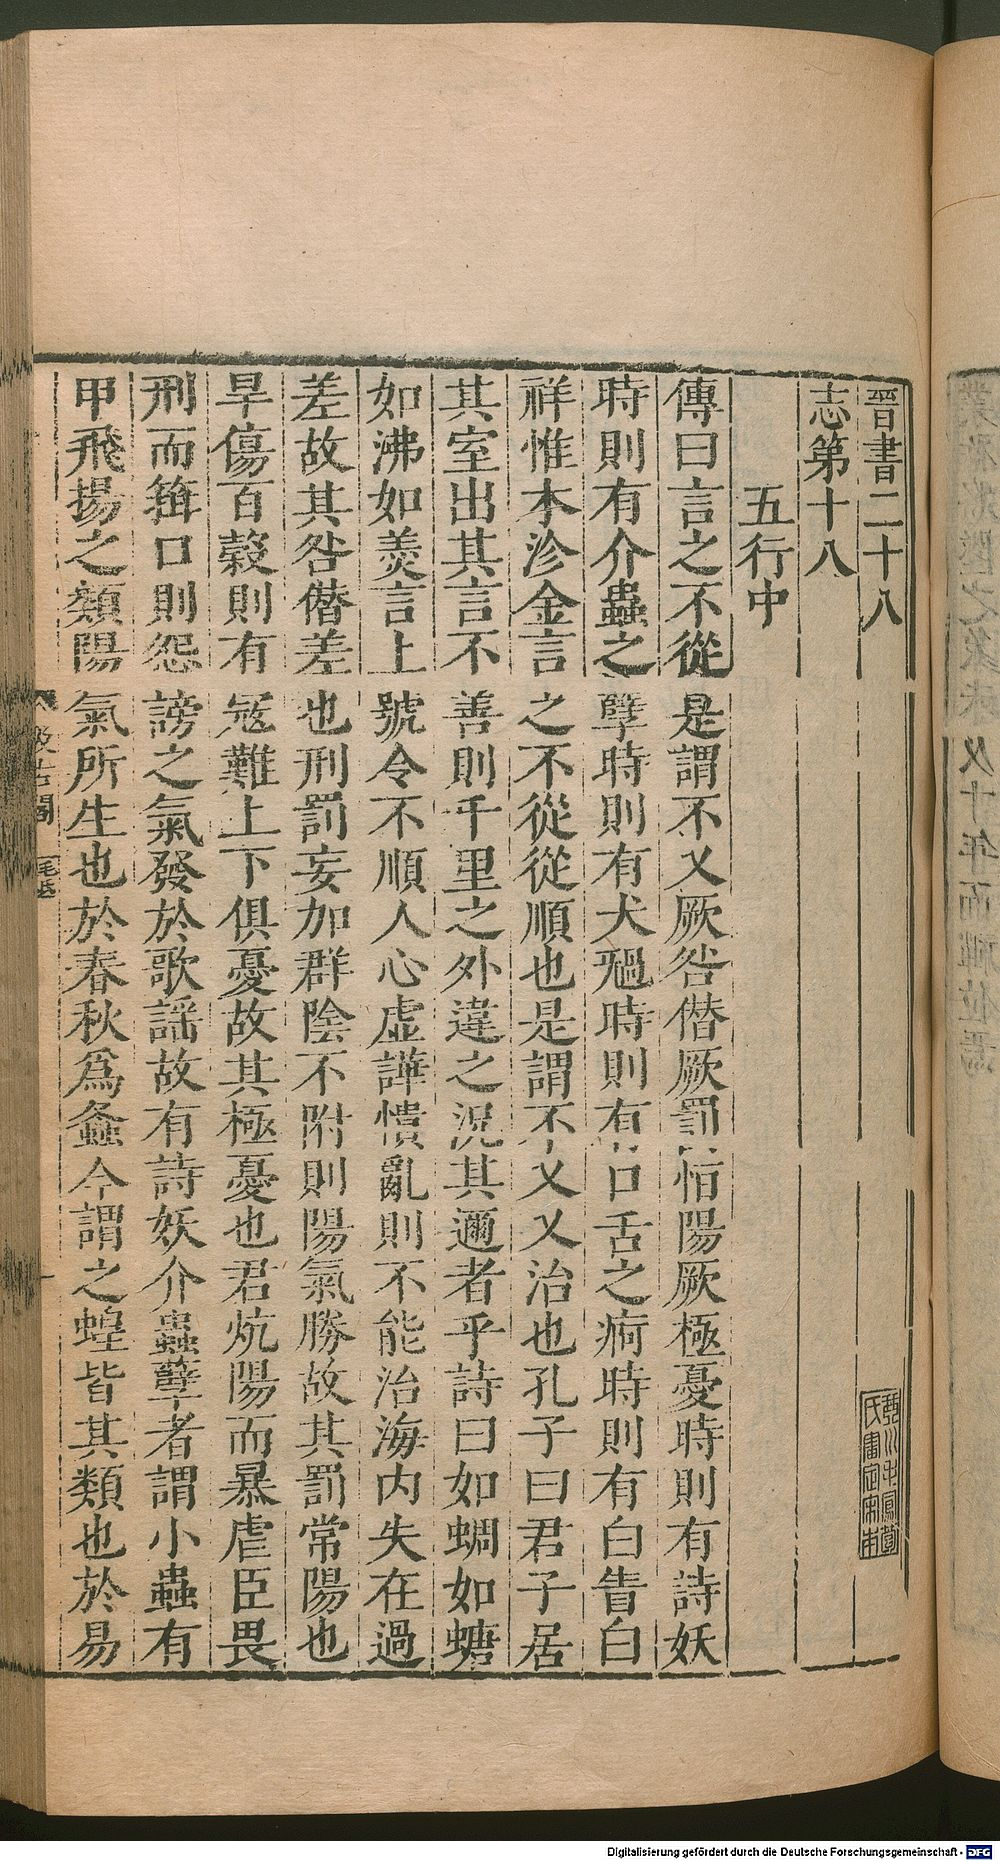 晉書二十八
志第十八
五行中
傳曰言之不從是謂不乂厥咎僭厥罰恒陽厥極憂時則有詩妖
時則有介蟲之孽時則有犬禍時則有口舌之痾時則有白眚白
祥惟木沴金言之不從從順也是謂不乂乂治也孔子曰君子居
其室出其言不善則千里之外違之況其邇者乎詩曰如蜩如螗
如沸如羹言上號令不順人心虛譁憒亂則不能治海內失在過
差故其咎僭差也刑罰妄加群陰不附則陽氣勝故其罰常陽也
旱傷百穀則有冦難上下俱憂故其極憂也君炕陽而暴虐臣畏
刑而箝口則怨謗之氣發於歌謡故有詩妖介蟲孽者謂小蟲有
甲飛揚之類陽氣所生也於春秋爲螽今謂之蝗皆其類也於易
汲古閣
Digitalisierung gefördert durch die Deutsche Forschungsgemeinschaft - DFG